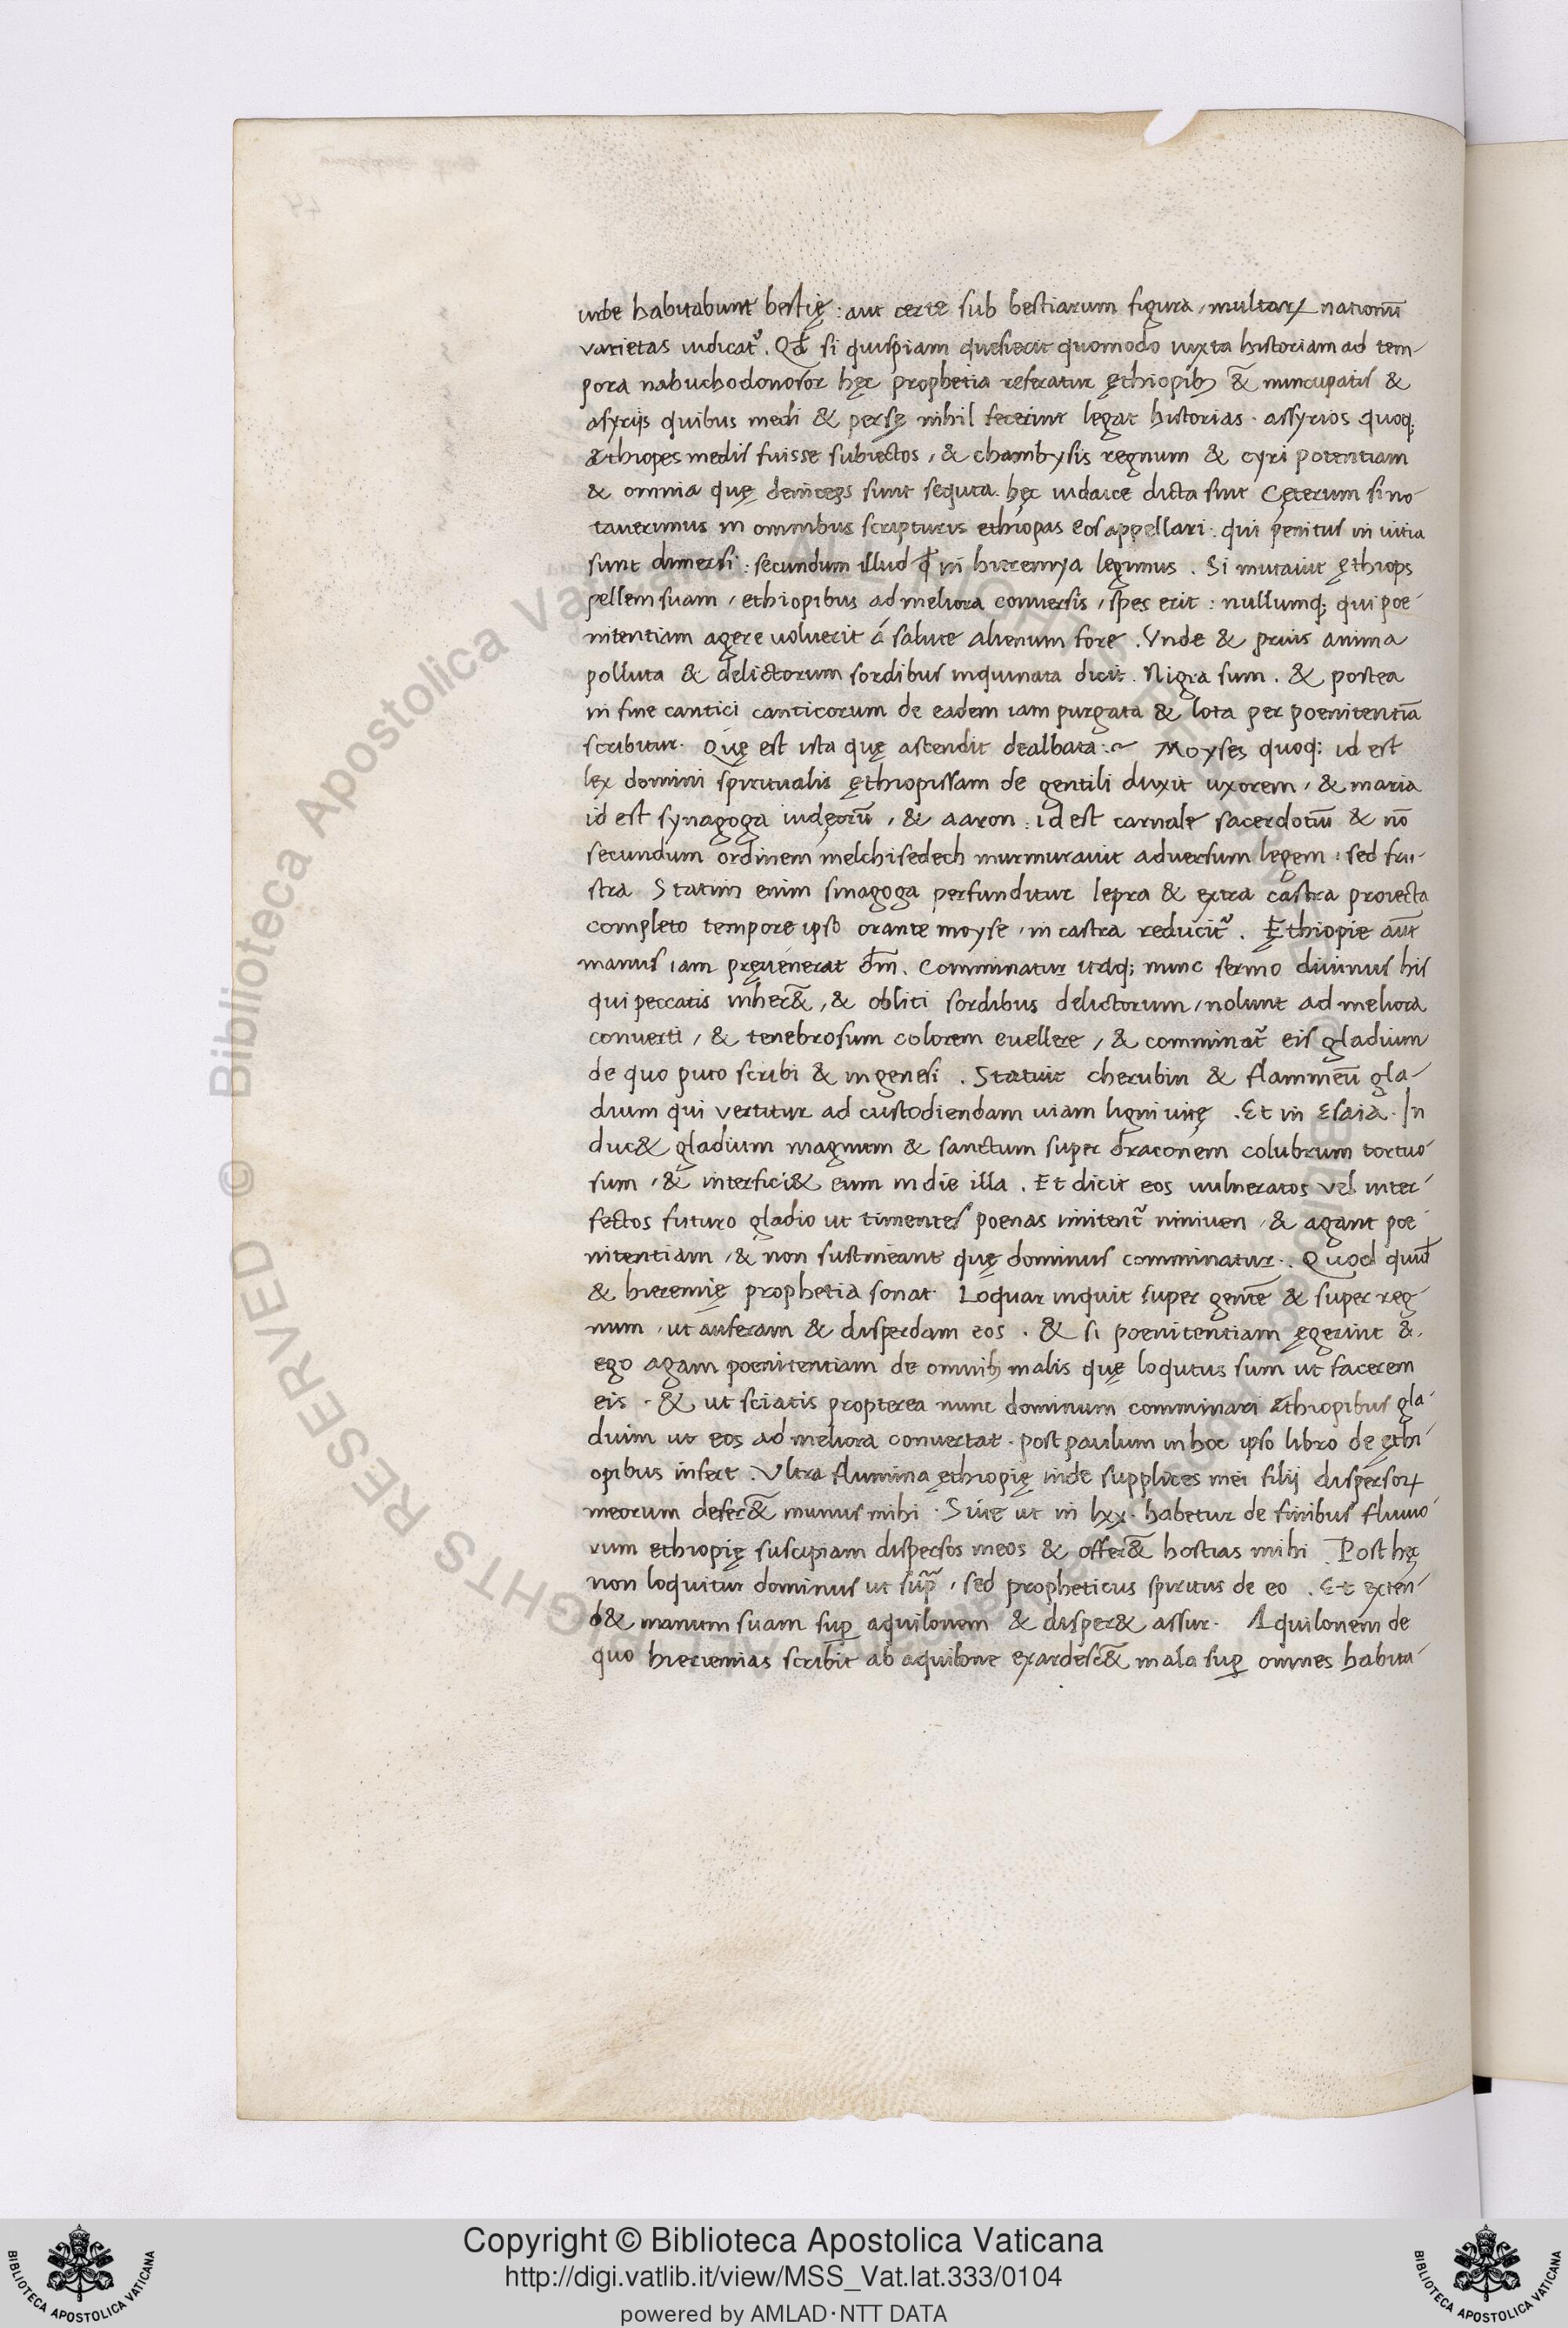 urbe habitabunt bestię : aut certe sub bestiarum figura , multarꝝ nationū
varietas iudicat᷑ . Qđ si quispiam quesierit quomodo iuxta historiam ad tem-
pora nabuchodonosor hęc prophetia referatur ęthiopib; & nuncupatis &
assyrijs quibus medi & persę nihil fecerint legat historias . assyrios quoq;
æthiopes medis fuisse subiectos , & chambysis regnum & cyri potentiam
& omnia quę deinceps sunt sequta . hęc iudaice dicta sint Cęterum si no-
taverimus in omnibus scripturis ethiopas eos appellari : qui penitus in uitia
sunt dimersi : secundum illud ꝙ in hieremya legimus . Si mutauit ęthiops
pellem suam , ethiopibus ad meliora conuersis , spes erit : nullumq; qui poe-
nitentiam agere uoluerit á salute alienum fore . Vnde & prius anima
polluta & delictorum sordibus inquinata dicit . Nigra sum . & postea
in fine cantici canticorum de eadem iam purgata & lota per poenitentiā
scribitur . Quę est ista quę ascendit dealbata : Moyses quoq; id est
lex domini spiritualis ęthiopissam de gentili duxit uxorem , & maria
id est synagoga iudęorū , & aaron : id est carnale sacerdotiū & nō
secundum ordinem melchisedech murmurauit aduersum legem : sed fru-
stra Statim enim sinagoga perfunditur lepra & extra castra proiecta
completo tempore ipso orante moyse , in castra reducit᷑ . Ęthiopie aūt
manus iam pręuenerat dm̄ . Comminatur itaq; nunc sermo diuinus his
qui peccatis inher&̄ , & obliti sordibus delictorum , nolunt ad meliora
conuerti , & tenebrosum colorem euellere , & comminat᷑ eis gladium
de quo puto scribi & in genesi . Statuit cherubin & flammeū gla-
dium qui vertitur ad custodiendam uiam ligni uitę . Et in Esaia . In
duc& gladium magnum & sanctum super draconem colubrum tortuo-
sum , & interfici& eum in die illa . Et dicit eos uulneratos vel inter-
fectos futuro gladio ut timentes poenas imitent᷑ niniuen , & agant poe-
nitentiam , & non sustineant quę dominus comminatur . Quod quid
& hieremię prophetia sonat Loquar inquit super gentē & super reg-
num , ut auferam & disperdam eos . & si poenitentiam ęgerint & .
ego agam poenitentiam de omnib; malis quę loqutus sum ut facerem
eis . & ut sciatis propterea nunc dominum comminari æthiopibus gla-
dium ut eos ad meliora convertat . post paulum in hoc ipso libro de ęthi-
opibus infert . Vltra flumina ęthiopię inde supplices mei filij dispersoꝝ
meorum defer&̄ munus mihi . Siue ut in lxx . habetur de finibus fluuio-
rum ethiopię suscipiam dispersos meos & offer&̄ hostias mihi Post hęc
non loquitur dominus ut supͣ , sed propheticus spiritus de eo . Et exten-
d& manum suam suꝑ aquilonem & disper& assur . Aquilonem de
quo hieremias scribit ab aquilone exardesc&̄ mala suꝑ omnes habita-
Copyright © Biblioteca Apostolica Vaticana
http://digi.vatlib.it/view/MSS_Vat.lat.333/0104
powered by AMLAD·NTT DATA
BIBLIOTECA APOSTOLICA VATICANA
BIBLIOTECA APOSTOLICA VATICANA